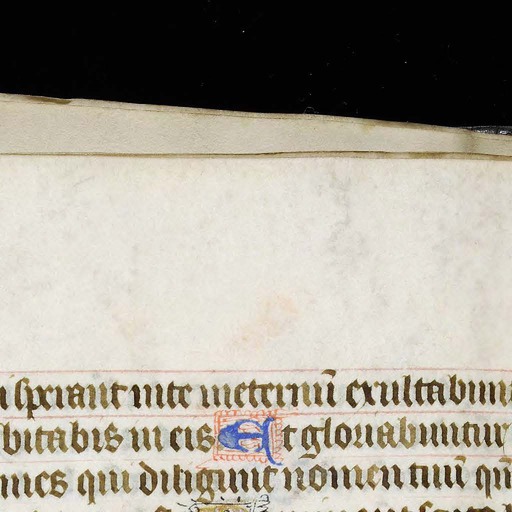 i sperant in te in eternū exultabunt
bitabis in eis Et gloriabuntur
mnes qui diligunt nomen tuū qm̄